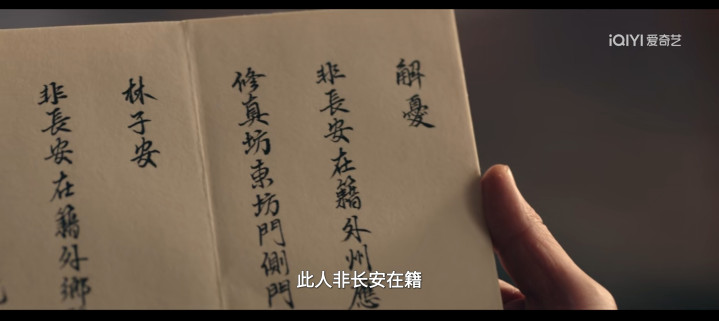 iQIYI 爱奇艺
解憂
非長安在籍外州應
修真坊東坊門側門
林子安
非長安在籍外鄉
此人非长安在籍